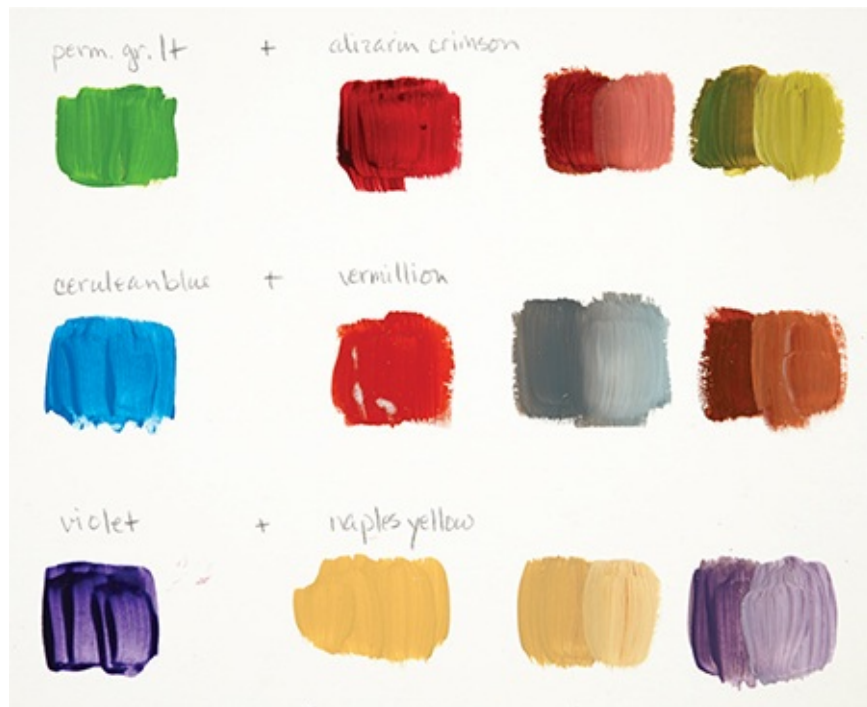 perm. gr. lt + alizarin crimson
cerulean blue + vermillion
violet + naples yellow